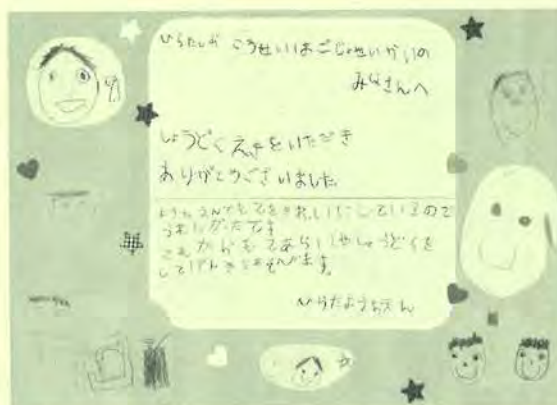 こうせいほごじょせいかいの
みなさんへ
しょうどくえきをいただき
ありがとうございました
ようちえんでもてをきれいにしているので
うれしかったです
これからもてあらいやしょうどくを
してげんきにあそびます。
ひらたようちえん